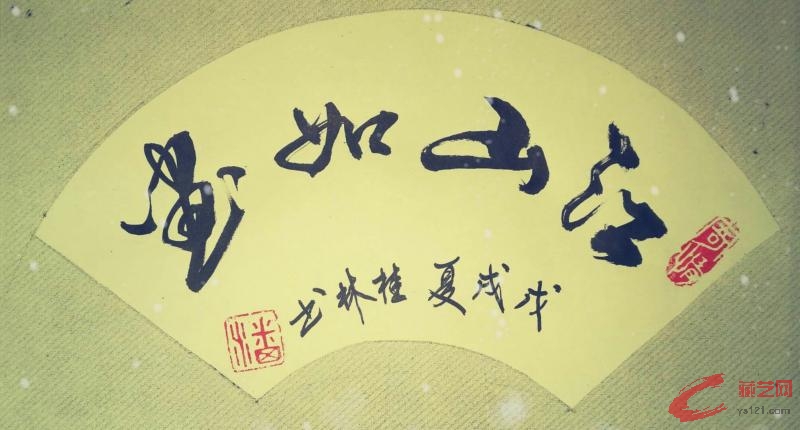 江山如画
戊戌夏桂林书
潘
藏艺网
ys121.com